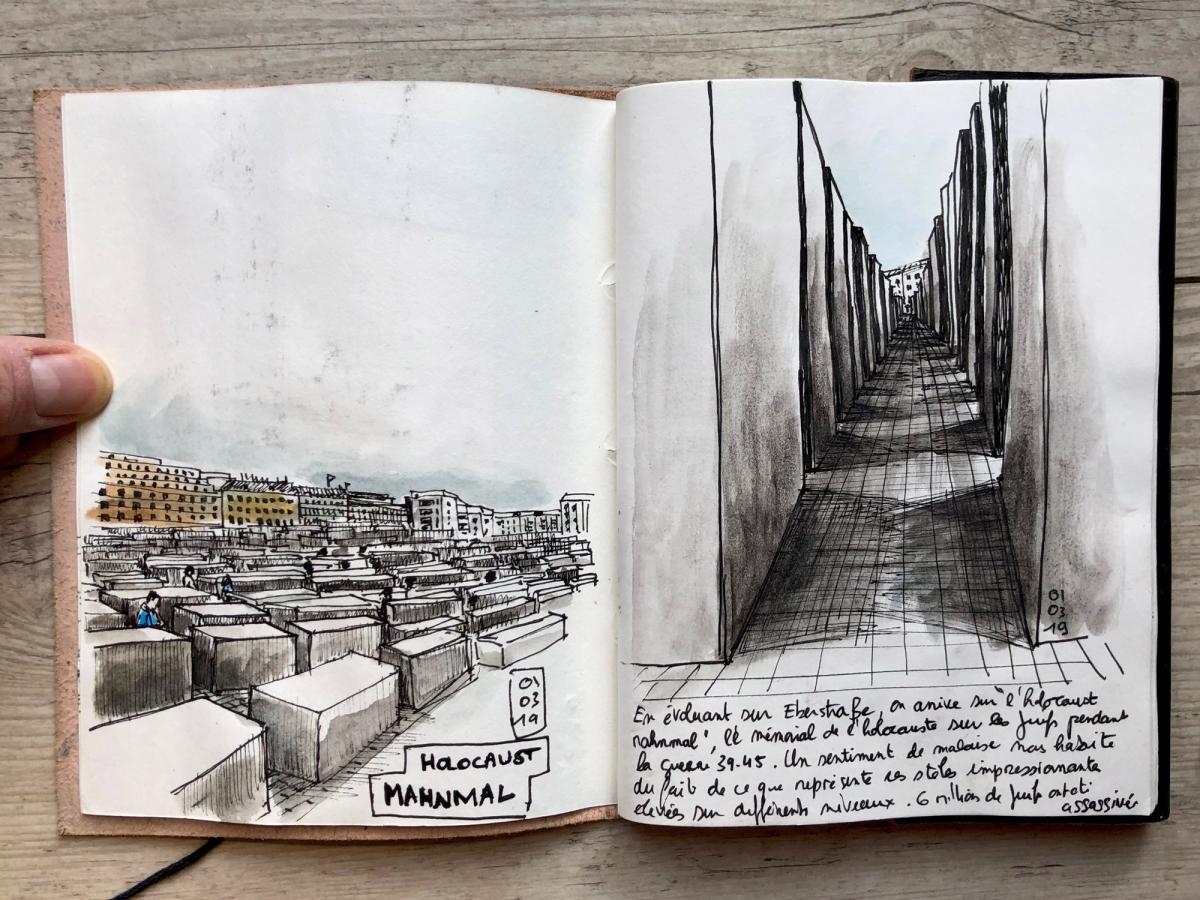 01
03
19
HOLOCAUST
MAHNMAL
01
03
19
En évoluant sur Eberstraße, on arrive sur "l'holocaust
mahnmal", le mémorial de l'holocauste sur les juifs pendant
la guerre 39.45. Un sentiment de malaise nous habite
du fait de ce que représente ces stèles impressionnante
élevées sur différents niveaux. 6 million de juifs ont été
assassinés